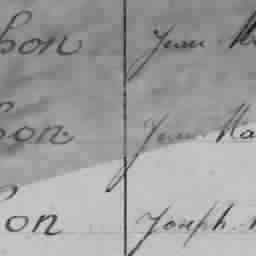 hon Jean
hon Jean Ma
on Joseph